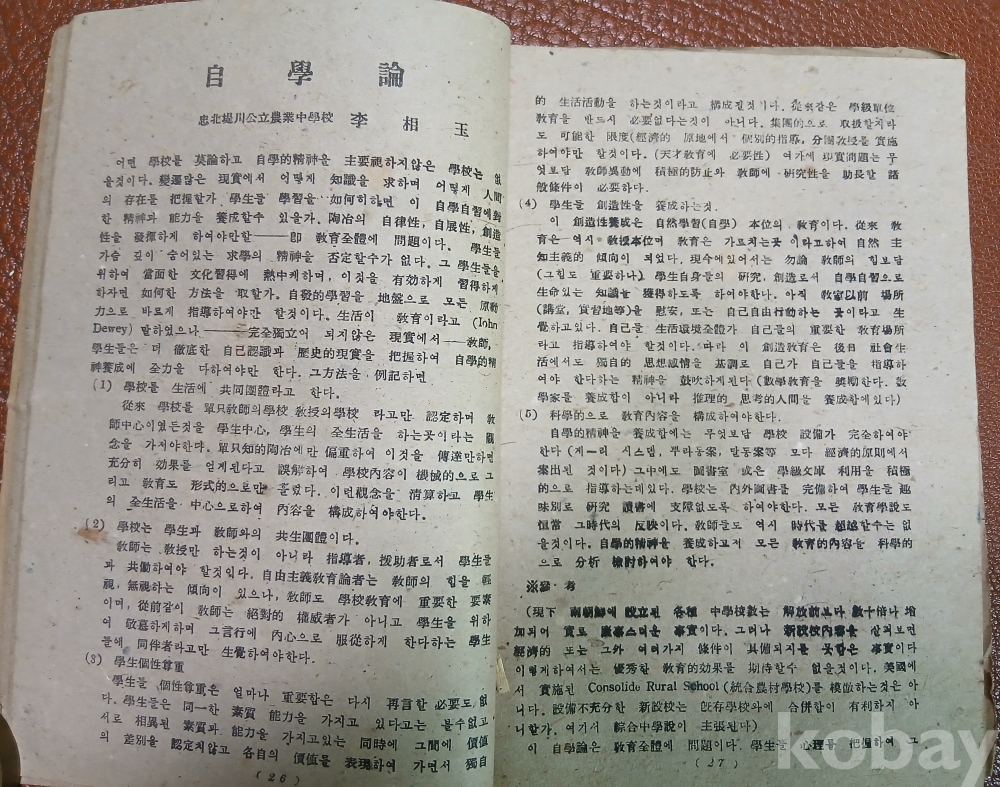 自學論
忠北堤川公立農業中學校 李相玉
어떤 學校를 莫論하고 自學的精神을 主要視하지않은 學校는 없
을것이다. 變遷많은 現實에서 어떻게 知識을 求하며 어떻게 人間
의 存在를 把握할가 學生을 學習을 如何히하면 이 自學自習에對
한 精神과 能力을 養成할수 있을가. 陶冶의 自律性, 自展性, 創造
性을 發揮하게 하여야만할――卽 敎育全體에 問題이다. 學生들
가슴 깊이 숨어있는 求學의 精神을 否定할수가 없다. 그 學生들을
위하여 當面한 文化習得에 熱中케하며, 이것을 有効하게 習得하게
하자면 如何한 方法을 取할가. 自發的學習을 地盤으로 모든 原動
力으로 바르게 指導하여야만 할것이다. 生活이 敎育이라고 (John
Dewey) 말하였으나――完全獨立이 되지않은 現實에서――敎師,
學生들은 더 徹底한 自己認識과 歷史的現實을 把握하여 自學的精
神養成에 全力을 다하여야만 한다. 그方法을 例記하면
(1) 學校를 生活에 共同團體라고 한다.
從來 學校를 單只敎師의學校 敎授의學校 라고만 認定하며 敎
師中心이였든것을 學生中心, 學生의 全生活을 하는곳이라는 觀
念을 가저야한다. 單只知的陶冶에만 偏重하여 이것을 傳達만하면
充分히 効果를 얻게된다고 誤解하여, 學校內容이 機械的으로 그
리고 敎育도 形式的으로만 흘렀다. 이런觀念을 淸算하고 學生
의 全生活을 中心으로하여 內容을 構成하여야한다.
(2) 學校는 學生과 敎師와의 共生團體이다.
敎師는 敎授만 하는것이 아니라 指導者, 援助者로서 學生들
과 共働하여야 할것이다. 自由主義敎育論者는 敎師의 힘을 輕
視, 無視하는 傾向이 있으나, 敎師도 學校敎育에 重要한 要素
이며, 從前같이 敎師는 絕對的 權威者가 아니고 學生을 위하
여 敬慕하게하며 그言行에 內心으로 服從하게 한다하는 學生
들에 同伴者라고만 生覺하여야한다.
(3) 學生個性尊重
學生들 個性尊重은 얼마나 重要함은 다시 再言할 必要도 없
다. 學生들은 同一한 素質 能力을 가지고 있다고는 볼수없고
서로 相異된 素質과 能力을 가지고있는 同時에 그間에 價値
의 差別을 認定치않고 各自의 價値를 表現하여 가면서 獨自
(26)
的 生活活動을 하는것이라고 構成될것이다. 從來같은 學級單位
敎育을 반드시 必要없다는것이 아니다. 集團的으로 取扱할지라
도 可能한 限度(經濟的 原地에서 個別的指導, 分團敎授를 實施
하여야만 할것이다. (天才敎育에 必要性) 여가에 現實問題는 무
엇보담 敎師異動에 積極的防止와 敎師에 硏究性을 助長할 諸
般條件이 必要하다.
(4) 學生들 創造性을 養成하는것.
이 創造性養成은 自然學習(自學) 本位의 敎育이다. 從來 敎
育은 역시 敎授本位며 敎育은 가르치는곳 이라고하여 自然 主
知主義的 傾向이 되였다. 現今에있어서는 勿論 敎師의 힘보담
(그힘도 重要하나) 學生自身들의 硏究, 創造로서 自學自習으로
生命있는 知識을 獲得하도록 하여야한다. 아직 敎室以前 場所
(講堂, 實習地等)을 慰安, 또는 自己自由行動하는 곳이라고 生
覺하고있다. 自己를 生活環境全體가 自己들의 重要한 敎育場所
라고 指導하여야 할것이다. 따라 이 創造敎育은 後日 社會生
活에서도 獨自的 思想感情을 基調로 自己가 自己를을 指導하
여야 한다하는 精神을 鼓吹하게된다 (數學敎育을 奬勵한다. 數
學家를 養成함이 아니라 推理的 思考的人間을 養成함에있다)
(5) 科學的으로 敎育內容을 構成하여야한다.
自學的精神을 養成함에는 무엇보담 學校 設備가 完全하여야
한다 (게ー리 시스템, 뿌라동案, 달동案等 모다 經濟的原則에서
案出된 것이다) 그中에도 圖書室 或은 學級文庫 利用을 積極
的으로 指導하는데있다. 學校는 內外圖書를 完備하여 學生들 趣
味別로 硏究 讀書에 支障없도록 하여야한다. 모든 敎育學說도
恒當 그時代의 反映이다. 敎師들도 역시 時代를 超越할수는 없
을것이다. 自學的精神을 養成하고저 모든 敎育的內容을 科學的
으로 分析 檢討하여야 한다.
※參・考
(現下 南朝鮮에 設立된 各種 中學校數는 解放前보다 數十倍나 增
加되여 實로 慶事스러운 事實이다. 그러나 新設校內容을 살펴보면
經濟的 또는 그外 여러가지 條件이 具備되지를 못함은 事實이다
이렇게하여서는 優秀한 敎育的効果를 期待할수 없을것이다. 美國에
서 實施된 Consolide Rural School (統合農村學校)를 模倣하는것은 아
니다. 設備不充分한 新設校는 旣存學校와에 合併함이 有利하지 아
니할가. 여기서 綜合中學說이 主張된다)
이 自學論은 敎育全體에 問題이다. 學生들 心理를 把握하여 그
(27)
kobay